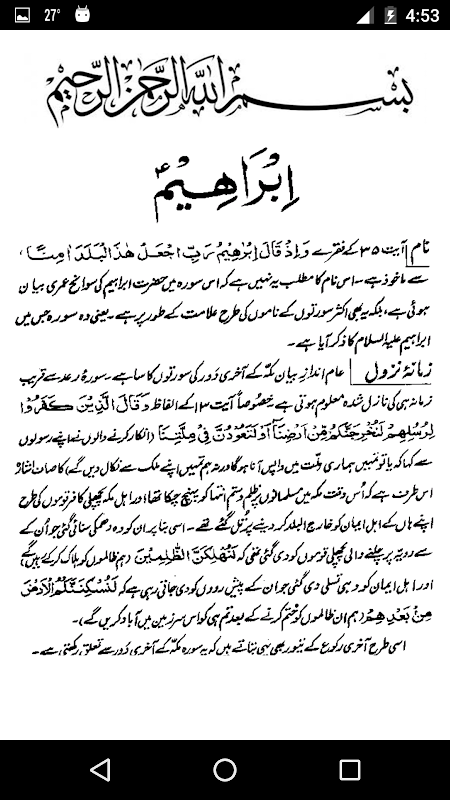 27° 4:53
بسم الله الرحمن الرحيم
اِبْرَاهِيْمؑ
نام | آیت ۳۵ کے فقرے وَاِذْ قَالَ اِبْرٰهِيْمُ رَبِّ اجْعَلْ هٰذَا الْبَلَدَ اٰمِنًا،
سے ماخوذ ہے۔ اس نام کا مطلب یہ نہیں ہے کہ اس سورہ میں حضرت ابراہیم کی سوانح عمری بیان
ہوئی ہے، بلکہ یہ بھی اکثر سورتوں کے ناموں کی طرح علامت کے طور پر ہے۔ یعنی وہ سورہ جس میں
ابراہیم علیہ السلام کا ذکر آیا ہے۔
زمانۂ نزول | عام انداز بیان مکہ کے آخری دَور کی سورتوں کا سا ہے۔ سورۂ رعد سے قریب
زمانہ ہی کی نازل شدہ معلوم ہوتی ہے۔ خصوصاً آیت ۱۳ کے الفاظ وَقَالَ الَّذِيْنَ كَفَرُوْا
لِرُسُلِهِمْ لَنُخْرِجَنَّكُمْ مِّنْ اَرْضِنَآ اَوْ لَتَعُوْدُنَّ فِيْ مِلَّتِنَا (انکار کرنے والوں نے اپنے رسولوں
سے کہا کہ یا تو تمہیں ہماری ملّت میں واپس آنا ہوگا ورنہ ہم تمہیں اپنے ملک سے نکال دیں گے) کا صاف اشارہ
اس طرف ہے کہ اُس وقت مکہ میں مسلمانوں پر ظلم و ستم انتہا کو پہنچ چکا تھا اور اہل مکہ پچھلی کافر قوموں کی طرح
اپنے ہاں کے اہل ایمان کو خارج البلد کر دینے پر تُل گئے تھے۔ اسی بنا پر ان کو وہ دھمکی سنائی گئی جو اُن کے
سے رویّہ پر چلنے والی پچھلی قوموں کو دی گئی تھی کہ لَنُهْلِكَنَّ الظّٰلِمِيْنَ (ہم ظالموں کو ہلاک کر کے رہیں گے)
اور اہل ایمان کو وہی تسلی دی گئی جو ان کے پیش رووں کو دی جاتی رہی ہے کہ لَنُسْكِنَنَّكُمُ الْاَرْضَ
مِنْ بَعْدِهِمْ (ہم ان ظالموں کو ختم کرنے کے بعد تم ہی کو اس سرزمین میں آباد کریں گے)۔
اسی طرح آخری رکوع کے تیور بھی یہی بتاتے ہیں کہ یہ سورہ مکہ کے آخری دَور سے تعلق رکھتی ہے۔